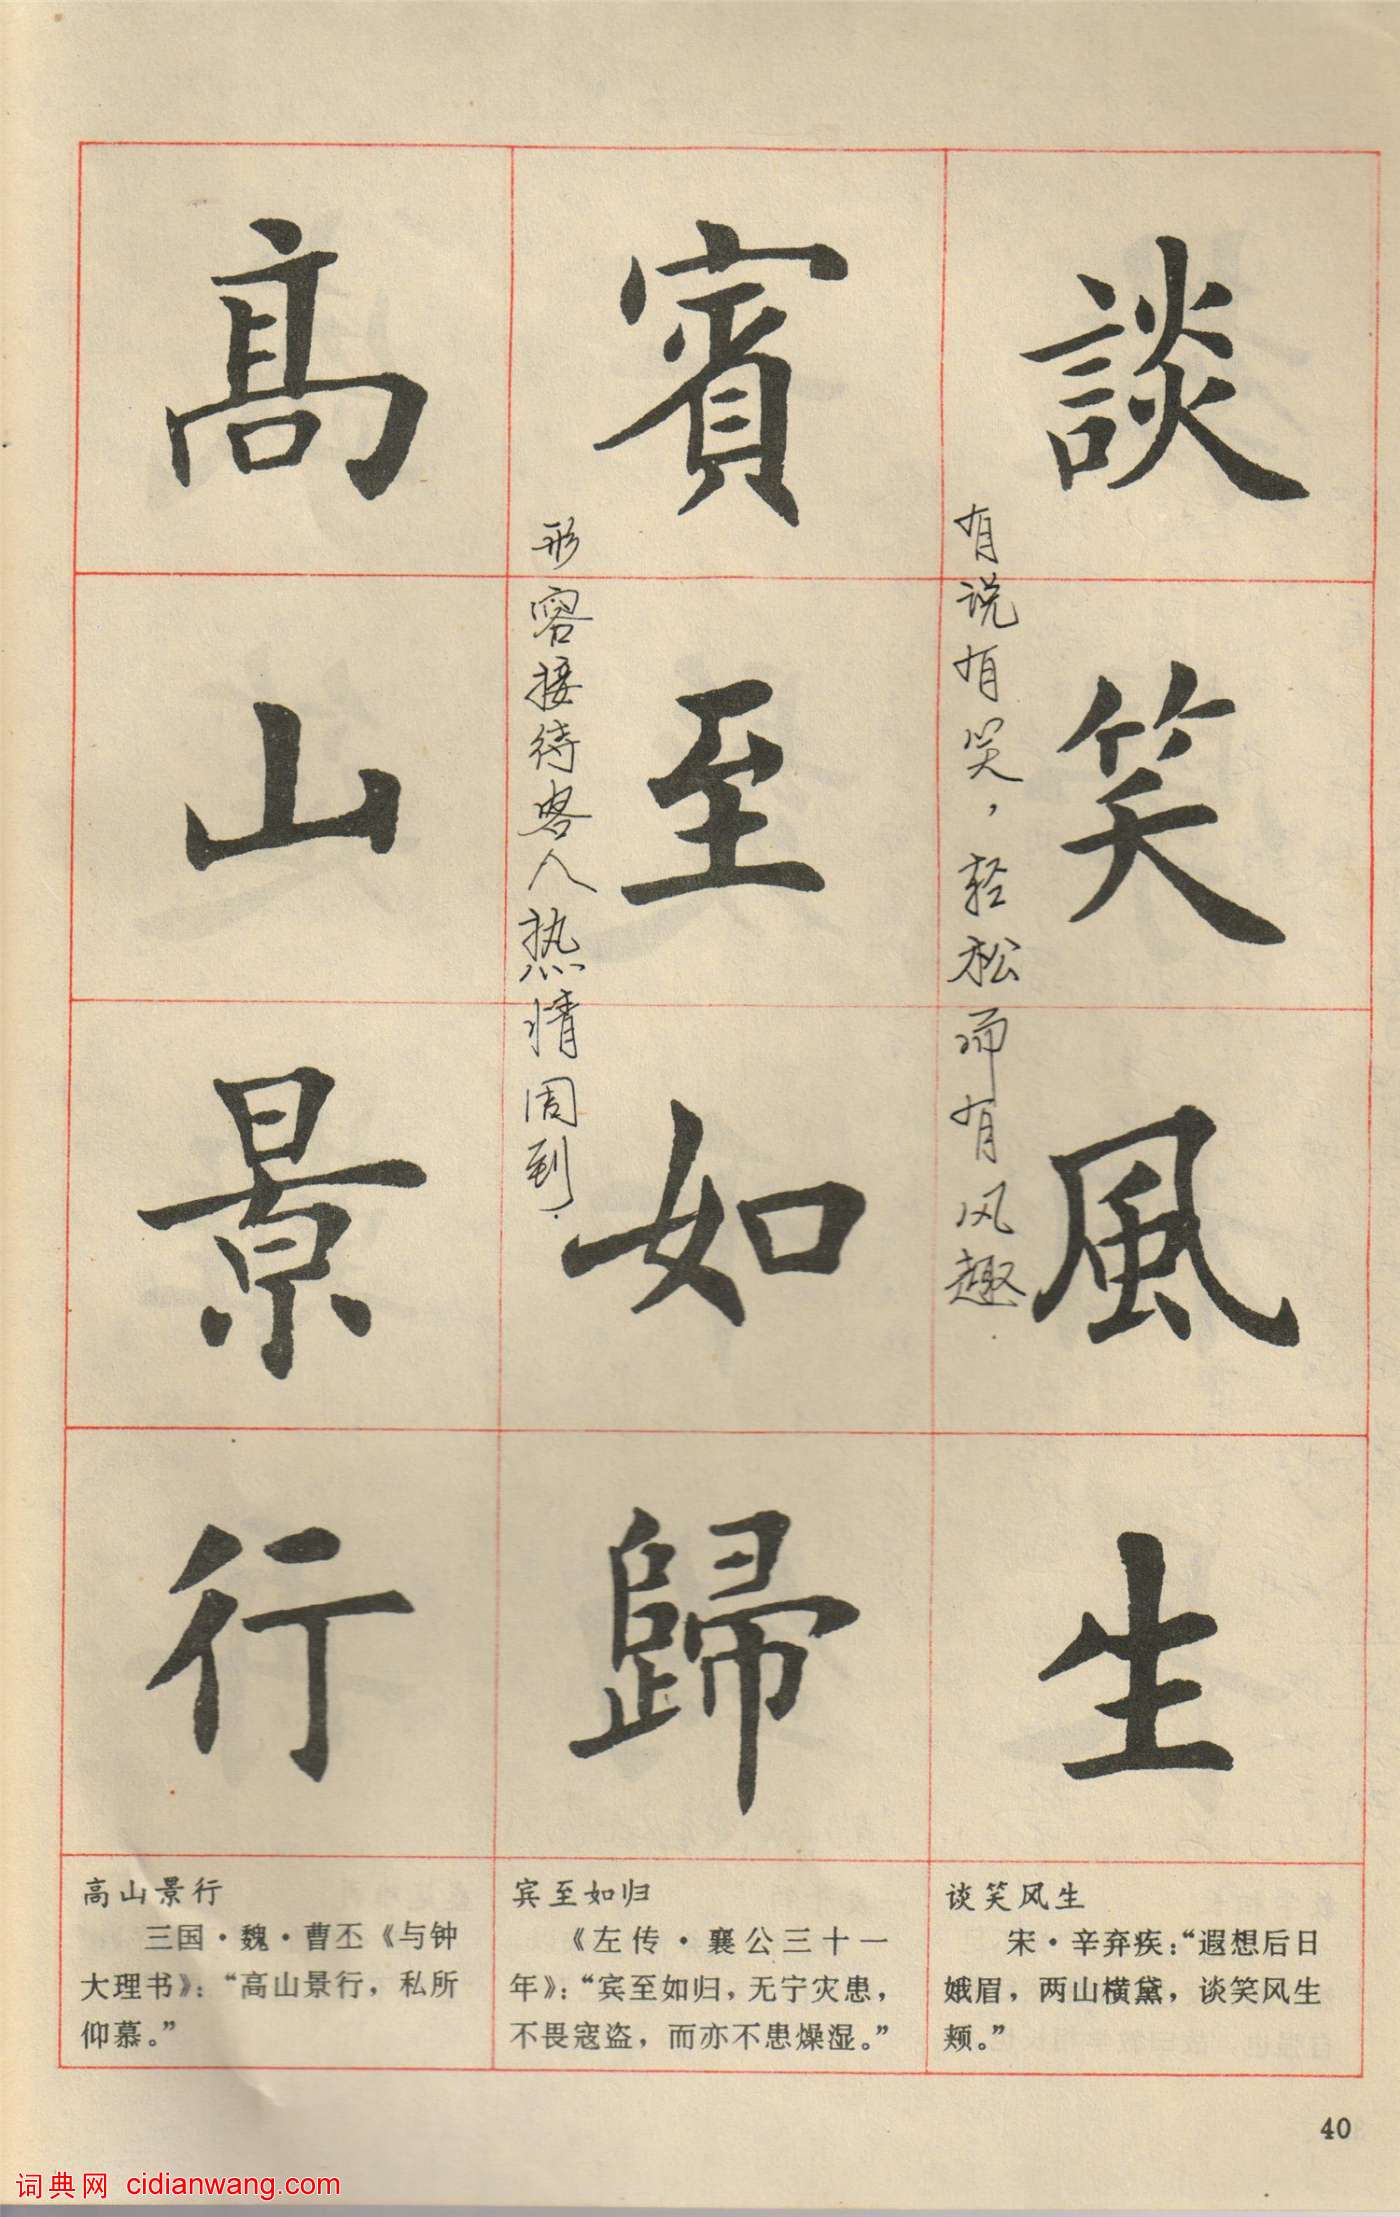 談笑風生
有说有笑，轻松而有风趣.
賓至如歸
形容接待客人热情周到.
高山景行
谈笑风生
宋·辛弃疾：“遐想后日
娥眉，两山横黛，谈笑风生
颊。”
宾至如归
《左传·襄公三十一
年》：“宾至如归，无宁灾患，
不畏寇盗，而亦不患燥湿。”
高山景行
三国·魏·曹丕《与钟
大理书》：“高山景行，私所
仰慕。”
40
词典网 cidianwang.com